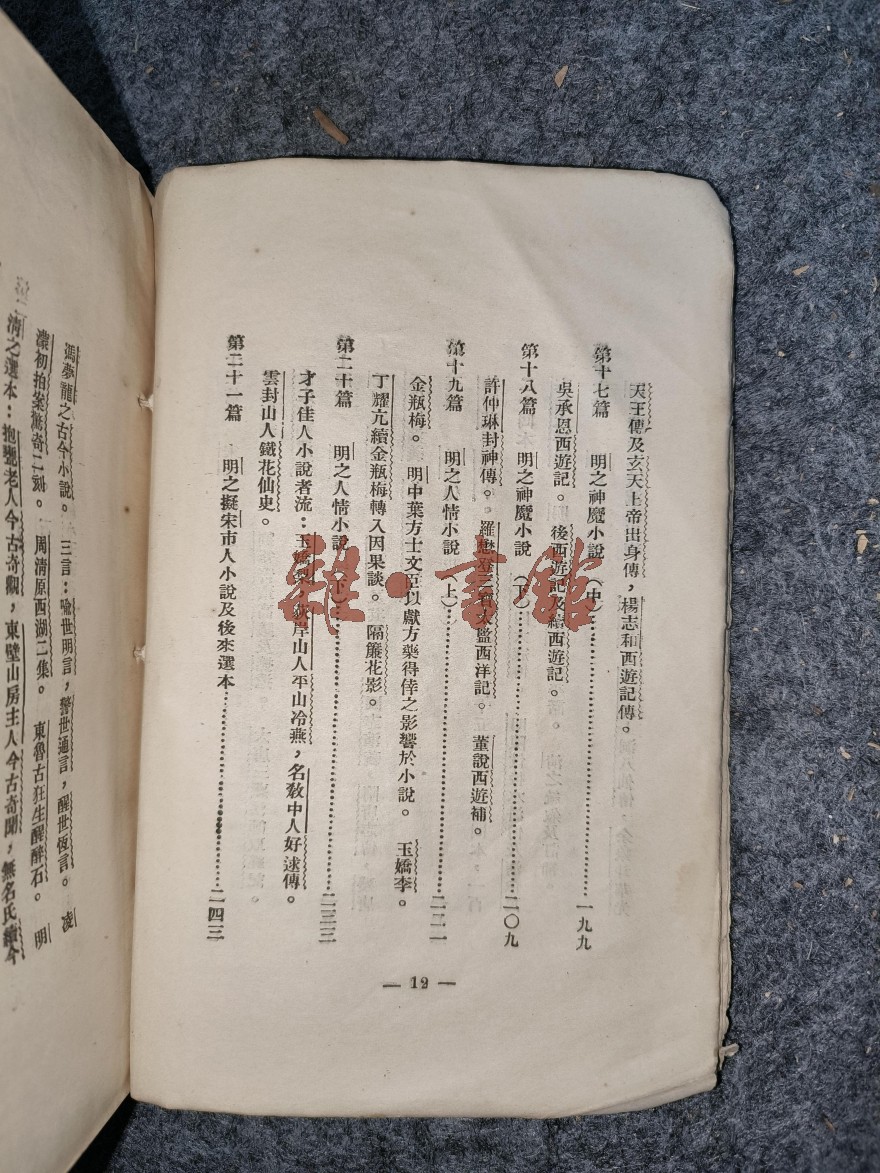 天王傳及玄天上帝出身傳，楊志和西遊記傳。
第十七篇　明之神魔小說（中）……一九九
吳承恩西遊記。　後西遊記及續西遊記。
第十八篇　明之神魔小說（下）……二〇九
許仲琳封神傳。　羅懋登三寶太監西洋記。　董說西遊補。
第十九篇　明之人情小說（上）……二二一
金瓶梅。　明中葉方士文臣以獻方藥得倖之影響於小說。　玉嬌李。
丁耀亢續金瓶梅轉入因果談。　隔簾花影。
第二十篇　明之人情小說（下）……二三三
才子佳人小說者流：玉嬌梨，荻岸山人平山冷燕，名敎中人好逑傳。
雲封山人鐵花仙史。
第二十一篇　明之擬宋市人小說及後來選本……二四三
— 12 —
馮夢龍之古今小說。　三言：喻世明言，警世通言，醒世恆言。　凌
濛初拍案驚奇二刻。　周清原西湖二集。　東魯古狂生醒醉石。　明
清之選本：抱甕老人今古奇觀，東壁山房主人今古奇聞，無名氏續今
雅·書館